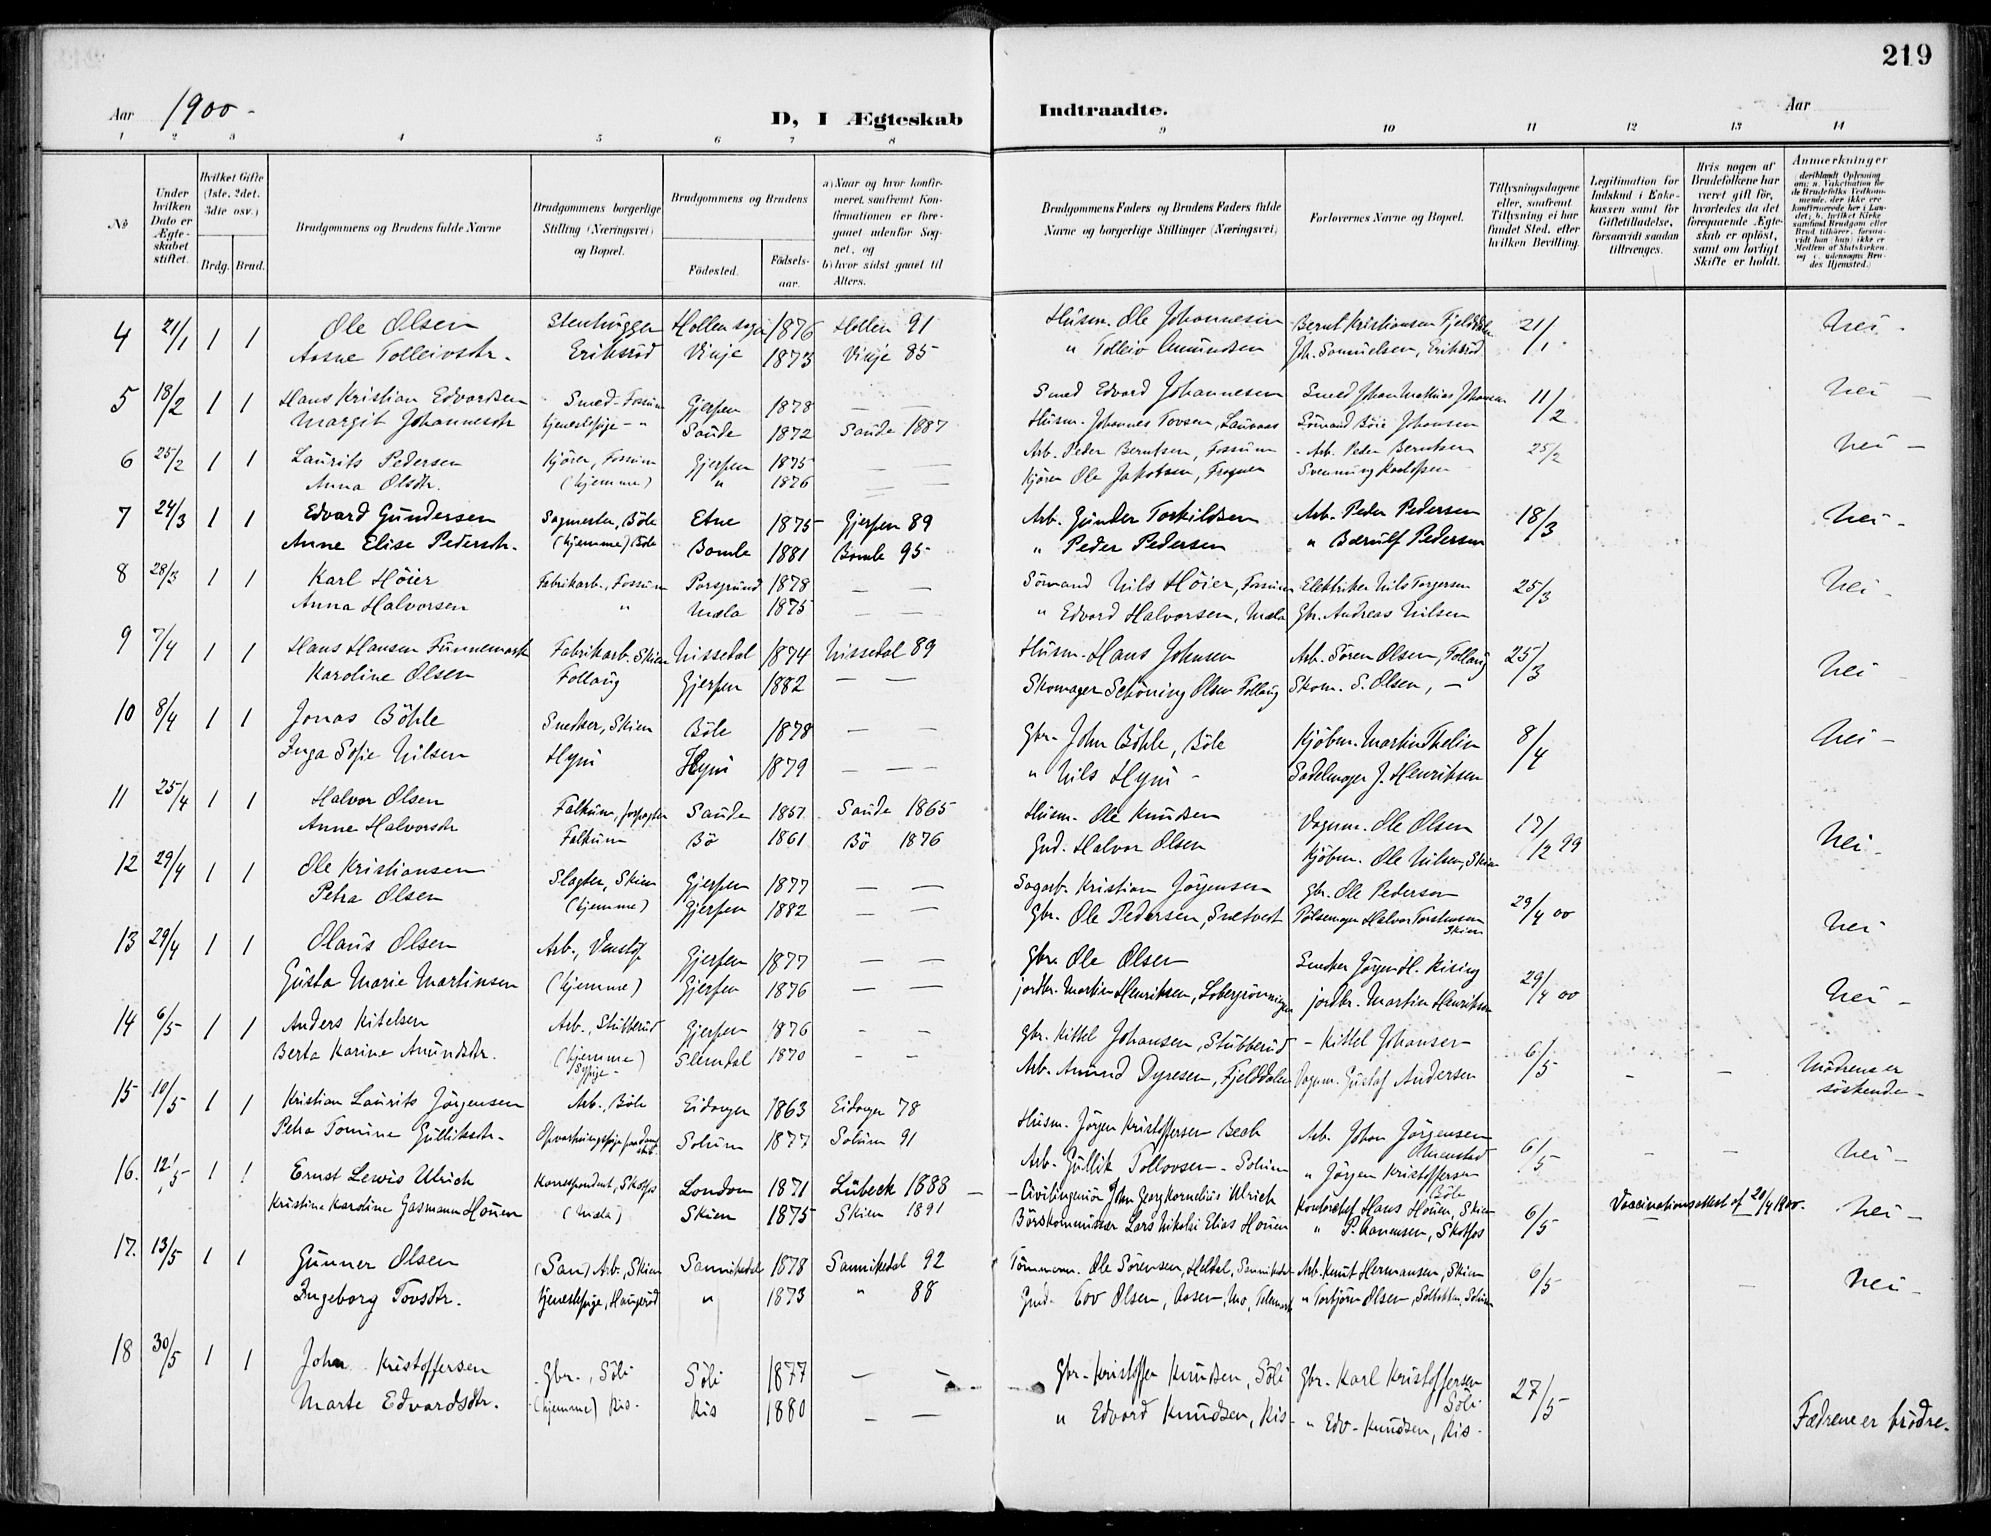 219
Aar 1900 -
D, I Ægteskab Indtraadte.
Aar
1 2 3 4 5 6 7 8 9 10 11 12 13 14
No
Under hvilken Dato er Ægteskabet stiftet.
Hvilket Gifte (1ste, 2det, 3die osv.)
Brdg. Brud.
Brudgommens og Brudens fulde Navne
Brudgommens borgerlige Stilling (Næringsvei) og Bopæl.
Brudgommens og Brudens
Födested. Födselsaar.
a) Naar og hvor konfirmeret, saafremt Konfirmationen er foregaaet udenfor Sognet, og
b) hvor sidst gaaet til Alters.
Brudgommens Faders og Brudens Faders fulde Navne og borgerlige Stillinger (Næringsvei)
Forlovernes Navne og Bopæl.
Tillysningsdagene eller, saafremt Tillysning ei har fundet Sted, efter hvilken Bevilling.
Legitimation for Indskud i Enkekassen samt for Giftetilladelse, forsaavidt saadan tiltrænges.
Hvis nogen af Brudefolkene har været gift før, hvorledes da det foregaaende Ægteskab er opløst, samt om lovligt Skifte er holdt.
Anmerkninger
4 21/1 1 1 Ole Olsen Stenhugger Hollen sogn 1876 Hollen 91 Husm. Ole Johannesen Bernt Kristiansen Fjelddalen 21/1 Nei -
Aasne Tolleivsdtr. Eriksröd Vinje 1873 Vinje 85 " Tolleiv Amundsen Joh. Samuelsen, Eriksröd
5 18/2 1 1 Hans Kristian Edvardsen Smed - Fossum Gjerpen 1878 — — Smed Edvard Johannesen Smed Johan Mathias Johansen 11/2 Nei -
Margit Johannesdtr tjenestepige - " Saude 1872 Saude 1887 Husm. Johannes Tovsen, Sömand Böie Johansen
6 25/2 1 1 Laurits Pedersen Kjörer, Fossum Gjerpen 1875 — — Arb. Peder Berntsen, Fossum - Arb. Peder Berntsen 25/2 Nei -
Anna Olsdtr. (hjemme) " 1876 — — Kjörer Ole Jakobsen, Frogner Svennung
7 24/3 1 1 Edvard Gundersen Sagmester, Böle Etne 1875 Gjerpen 89 Arb. Gunder Torkildsen Arb. Peder Pedersen 18/3 Nei -
Anne Elise Pedersdtr. (hjemme) Böle Bamle 1881 Bamle 95 " Peder Pedersen " Bærulf Pedersen
8 28/3 1 1 Karl Höier Fabrikarb., Fossum Porsgrund 1878 — — Sömand Nils Höier, Fossum Elektriker Nils Torgersen 25/3 Nei -
Anna Halvorsen " Mæla 1875 — — " Edvard Halvorsen, Mæla Gbr. Andreas Nilsen
9 7/4 1 1 Hans Hansen Funnemark Fabrikarb. Skien Nissedal 1874 Nissedal 89 Husm. Hans Johnsen Arb. Sören Olsen, Follaug 25/3 Nei -
Karoline Olsen Follaug Gjerpen 1882 — — Skomager Schöning Olsen Follaug Skom. S. Olsen, —
10 8/4 1 1 Jonas Böhle Snedker, Skien Böle 1878 — — Gbr. John Böhle, Böle Kjöbm. Martin Thelin 8/4 Nei -
Inga Sofie Nilsen Hyni Hyni 1879 — — " Nils Hyni - Sadelmager J. Henriksen
11 25/4 1 1 Halvor Olsen Falkum, forpagter Saude 1851 Saude 1865 Husm. Ole Knudsen Vognm. Ole Olsen 17/12 99 Nei -
Anne Halvorsdtr Falkum Bö 1861 Bö 1876 Gmd. Halvor Olsen Kjöbm. Ole Nilsen, Skien
12 29/4 1 1 Ole Kristiansen Slagter, Skien Gjerpen 1877 — — Sagarb. Kristian Jörgensen Gbr. Ole Pedersen 29/4 00 Nei
Petra Olsen (hjemme) Gjerpen 1882 — — Gbr. Ole Pedersen, Snetvedt Pölsemager Halvor Torstensen Skien
13 29/4 1 1 Olaus Olsen Arb., Venstöp Gjerpen 1877 — — Gbr. Ole Olsen Snedker Jörgen H. Rising 29/4 00 Nei -
Gusta Marie Martinsen (hjemme) Gjerpen 1876 — — jordbr. Martin Henriksen, jordbr. Martin Henriksen
14 6/5 1 1 Anders Kittelsen Arb., Stubberud Gjerpen 1876 - - Gbr. Kittel Johansen, Stubberud - Kittel Johansen 6/5 - - Mödrene er söskende -
Berta Karine Amundsdtr. (hjemme) Sypige - Slemdal 1870 - - Arb. Amund Dyresen, Fjelddalen Vognm. Gustaf Andersen
15 10/5 1 1 Kristian Laurits Jörgensen Arb., Böle Eidanger 1863 Eidanger 78 Husm. Jörgen Kristoffersen Beck Arb. Johan Jörgensen 6/5 - - Nei -
Petra Tomine Gulliksdtr. Opvartningspige Solum 1877 Solum 91 Arb. Gullik Tollovsen - Solum " Jörgen Kristoffersen Böle
16. 12/5 1 1 Ernst Lewis Ulrich Korrespondent, Skotfos London 1871 Lübeck 1888 - - Civilingeniör John Georg Kornelius Ulrich Kontorchef Hans Houen, Skien 6/5 Vaccinationsattest af 20/4 1800. Nei -
Kristine Karoline Gasmann Houen (Mæla) Skien 1875 Skien 1891 Börskommissær Lars Nikolai Elias Houen " P. Hanensen, Skotfos
17. 13/5 1 1 Gunner Olsen (San) Arb., Skien Sannikedal 1878 Sannikedal 92 Tömmerm. Ole Sörensen, Heldal, Sannikedal Arb. Knut Hermansen, Skien 6/5 - - Nei -
Ingeborg Tovsdtr. tjenestepige, Haugerud " 1873 " 88 Gmd. Tov Olsen, Aasen, Mo, Telemark " Torbjörn Olsen, Solum
18 30/5 1 1 John Kristoffersen Gbr., Söli Söli 1877 — - Gbr. Kristoffer Knudsen, Söli Gbr. Karl Kristoffersen Söli 27/5 Fædrene er brödre.
Marte Edvardsdtr. (hjemme) Ris. Ris 1880 - — " Edvard Knudsen, Ris - " Edv. Knudsen, Ris.